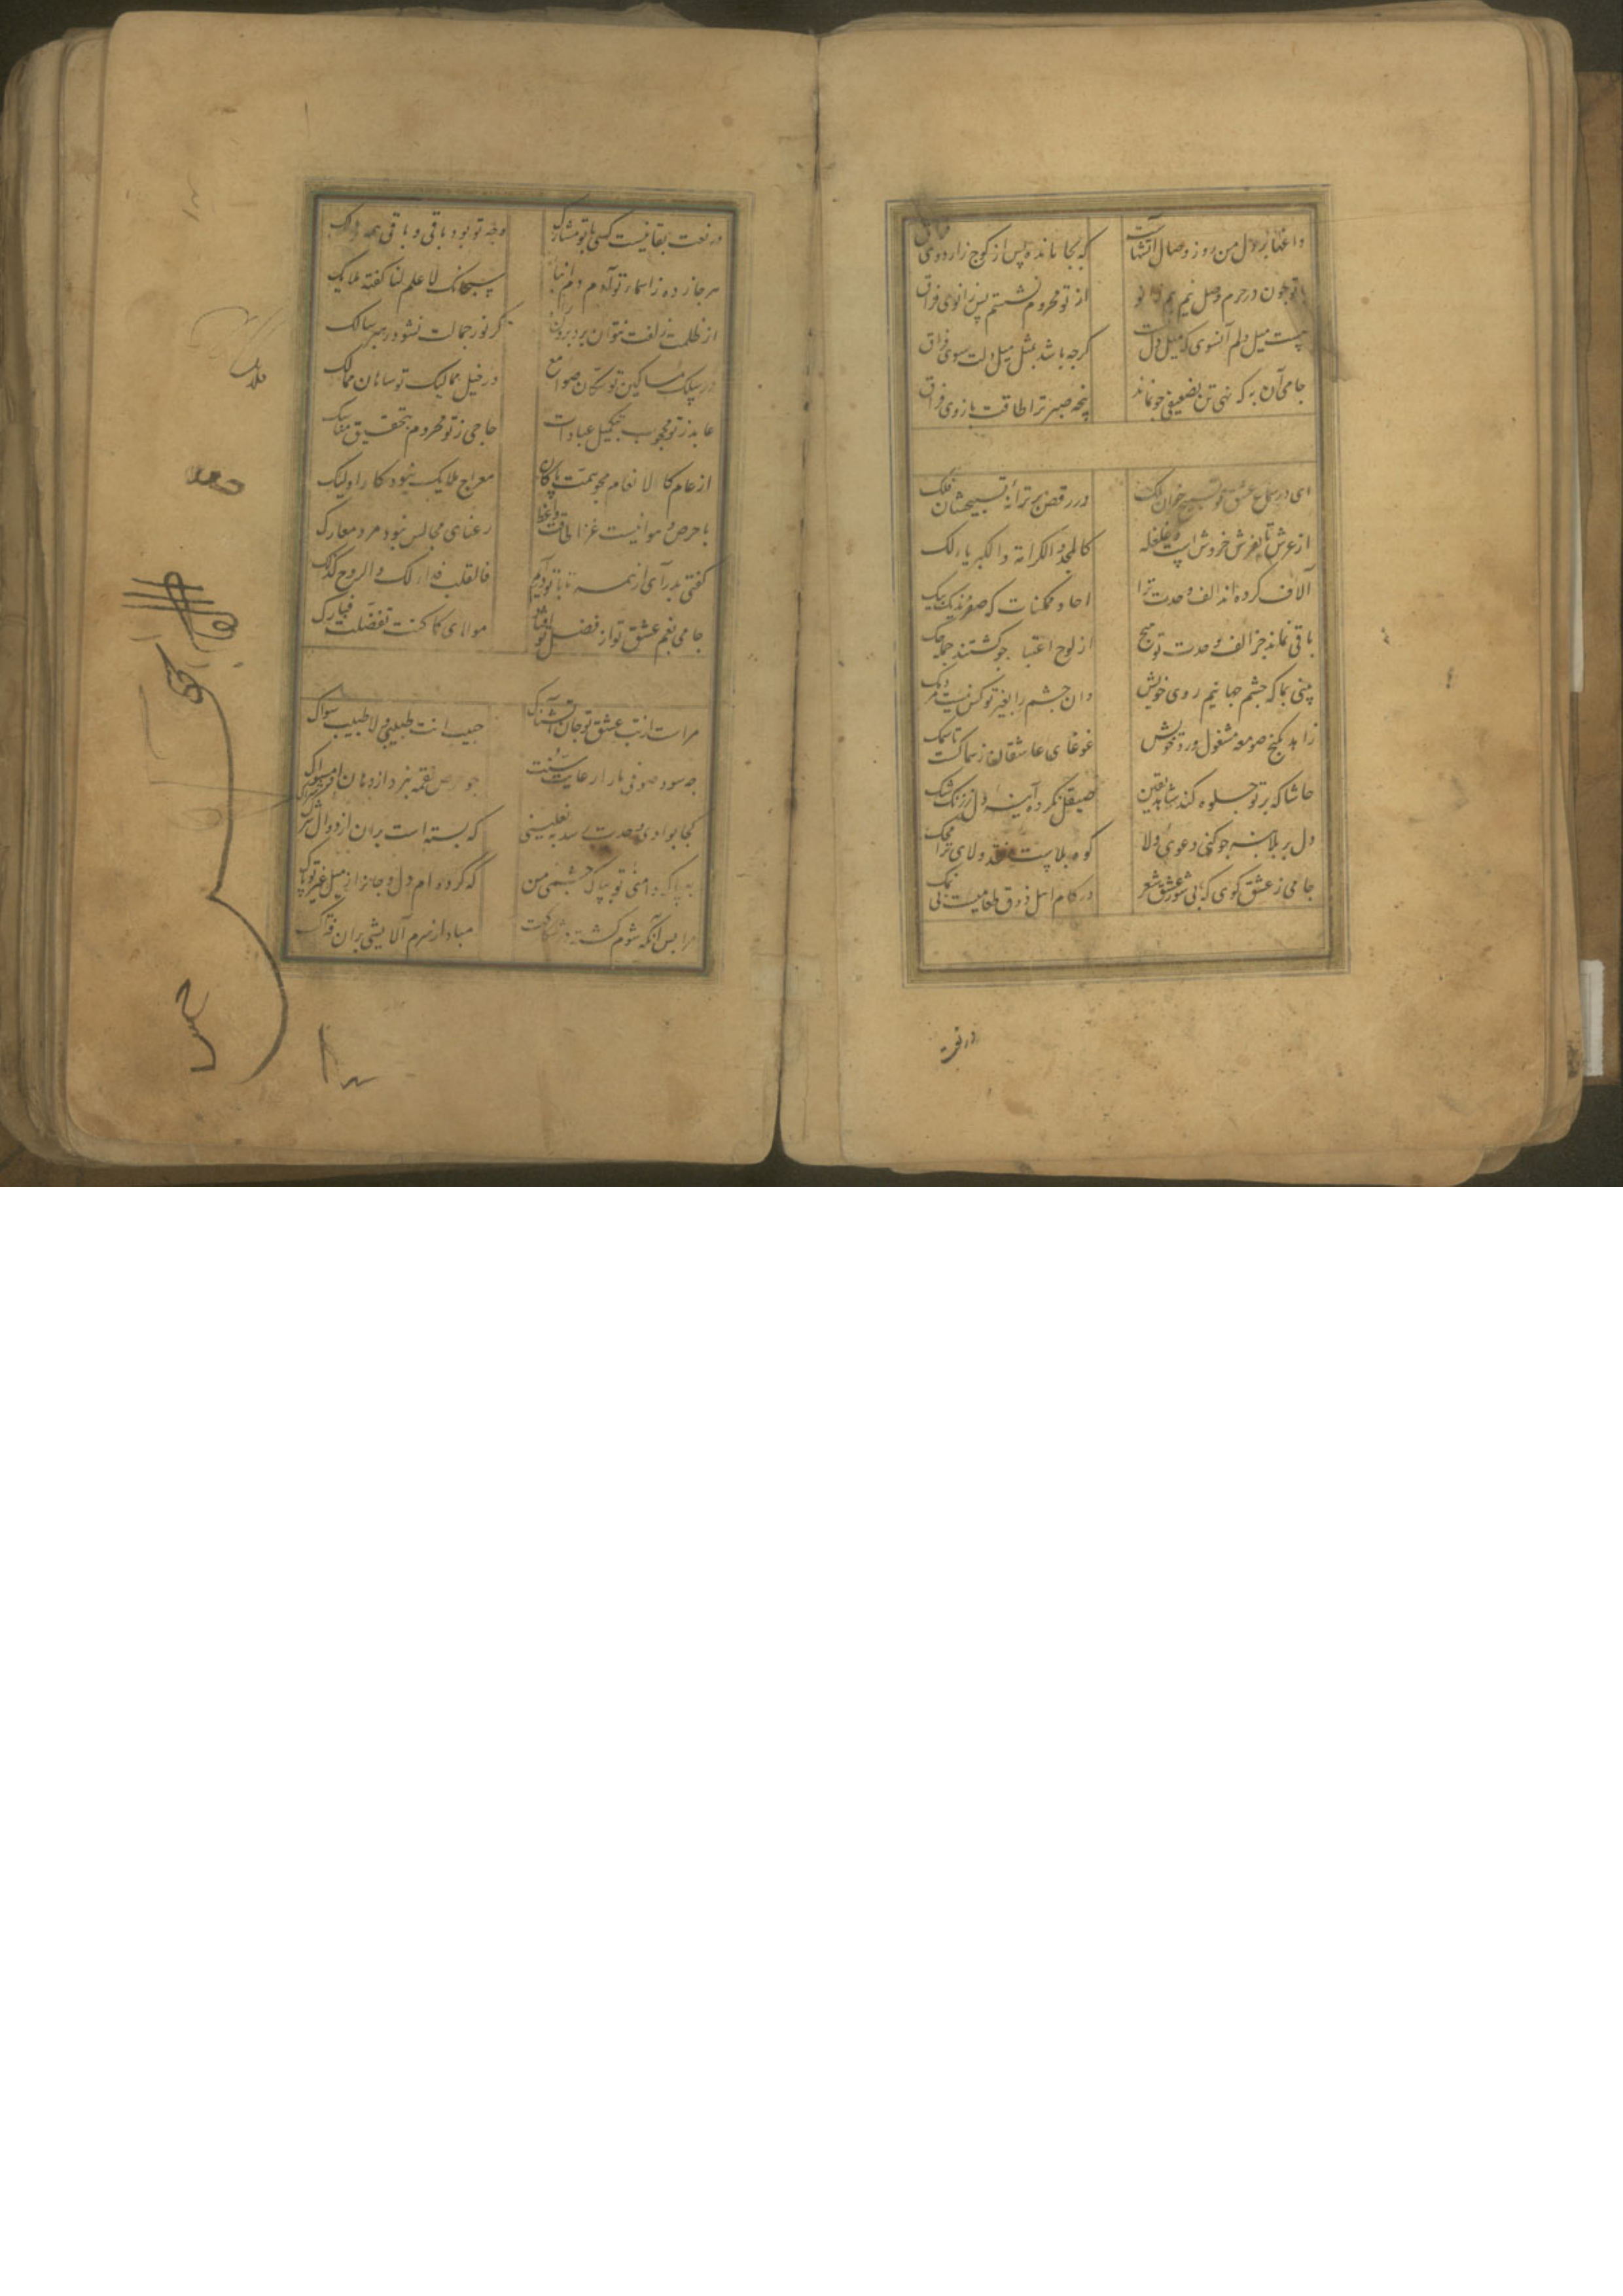 داغها بر دل من روز وصال آتشهاست که بجا مانده پس از کوچ ز اردوی فراق
با تو چون در حرم وصل نیم هم زانو از تو محروم نشستم پس زانوی فراق
نیست میل دلم آنسوی که میل دل تست گرچه باشد بمثل میل دلت سوی فراق
جامی آن به که نهی تن بضعیفی چو نماند پنجه صبر ترا طاقت بازوی فراق
ای در سماع عشق تو تسبیح خوان ملک در رقص بر ترانه تسبیحشان فلک
از عرش تا بفرش خروش است و غلغله کالمجد و الکرامة و الکبریاء لک
آلاف کرده‌اند الف وحدت ترا احاد ممکنات که صفرند یک بیک
باقی نماند جز الف وحدت تو هیچ از لوح اعتبار چو گشتند جمله حک
بینی بما که چشم جهانیم روی خویش وان چشم را بغیر تو کس نیست مردمک
زاهد بکنج صومعه مشغول ورد خویش غوغای عاشقان ز سماکست تا سمک
حاشا که بر تو جلوه کند شاهد یقین صیقل نکرده آینه دل ز زنگ شک
دل بر بلا بنه چو کنی دعوی ولا کوه بلاست نقد ولای ترا محک
جامی ز عشق گوی که بی شور عشق شعر در کام اهل ذوق طعامیست بی نمک
در نعت
در نعت بقا نیست کسی با تو مشارک وجه تو بود باقی و باقی همه هالک
هر جا زده ز اسماء تو آدم دم انبا سبحانک لا علم لنا گفته ملایک
از ظلمت زلفت نتوان برد برون راه گر نور جمالت نشود رهبر سالک
در سلک مساکین تو سکان صوامع در خیل ممالیک تو شاهان ممالک
عابد ز تو محجوب بتکمیل عبادات حاجی ز تو محروم بتحقیق مناسک
از عام کالانعام مجو همت پاکان معراج ملایک نبود کار اولئک
با حرص و هوا نیست غزا لایق وعظ رعنای مجالس نبود مرد معارک
گفتی بدر آی از همه تا با تو در آیم فالقلب فدا لک و الروح کذلک
جامی بغم عشق تو از فضل تو افتاد مولای کما کنت تفضلت فبارک
مراست از تب عشق تو جان آتشناک حبیب انت طبیبی و لا طبیب سواک
چه سود صوفی ما را رعایت سنت چو حرص لقمه نبرد از دهان او مسواک
کجا بوادی وحدت رسد به نعلینی که بسته است بران از دوال شرک شراک
به پاک دامنی تو بپاک چشمی من که کرده‌ام دل و جانرا ز میل غیر تو پاک
مرا بس آنکه شوم کشته مباد از سرم آلایشی بران فتراک